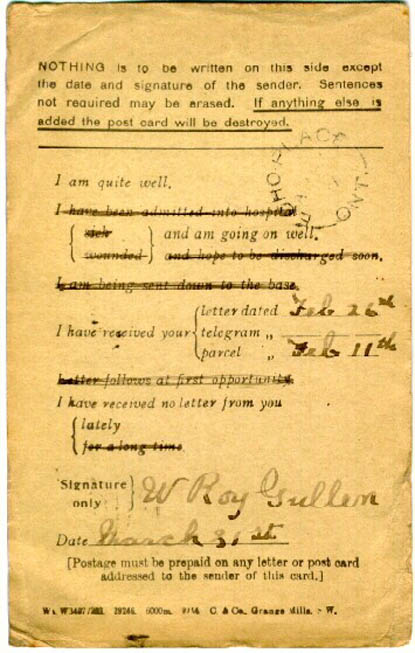 NOTHING is to be written on this side except
the date and signature of the sender. Sentences
not required may be erased. If anything else is
added the post card will be destroyed.
I am quite well.
I have been admitted into hospital
sick
and am going on well.
wounded
and hope to be discharged soon.
I am being sent down to the base.
letter dated Feb 26th
I have received your telegram „
parcel „ Feb 11th
Letter follows at first opportunity.
I have received no letter from you
lately
for a long time.
Signature only W Roy Gullen
Date March 31st
[Postage must be prepaid on any letter or post card
addressed to the sender of this card.]
29246. 6000m. C. & Co., Grange Mills, S.W.
ONT.